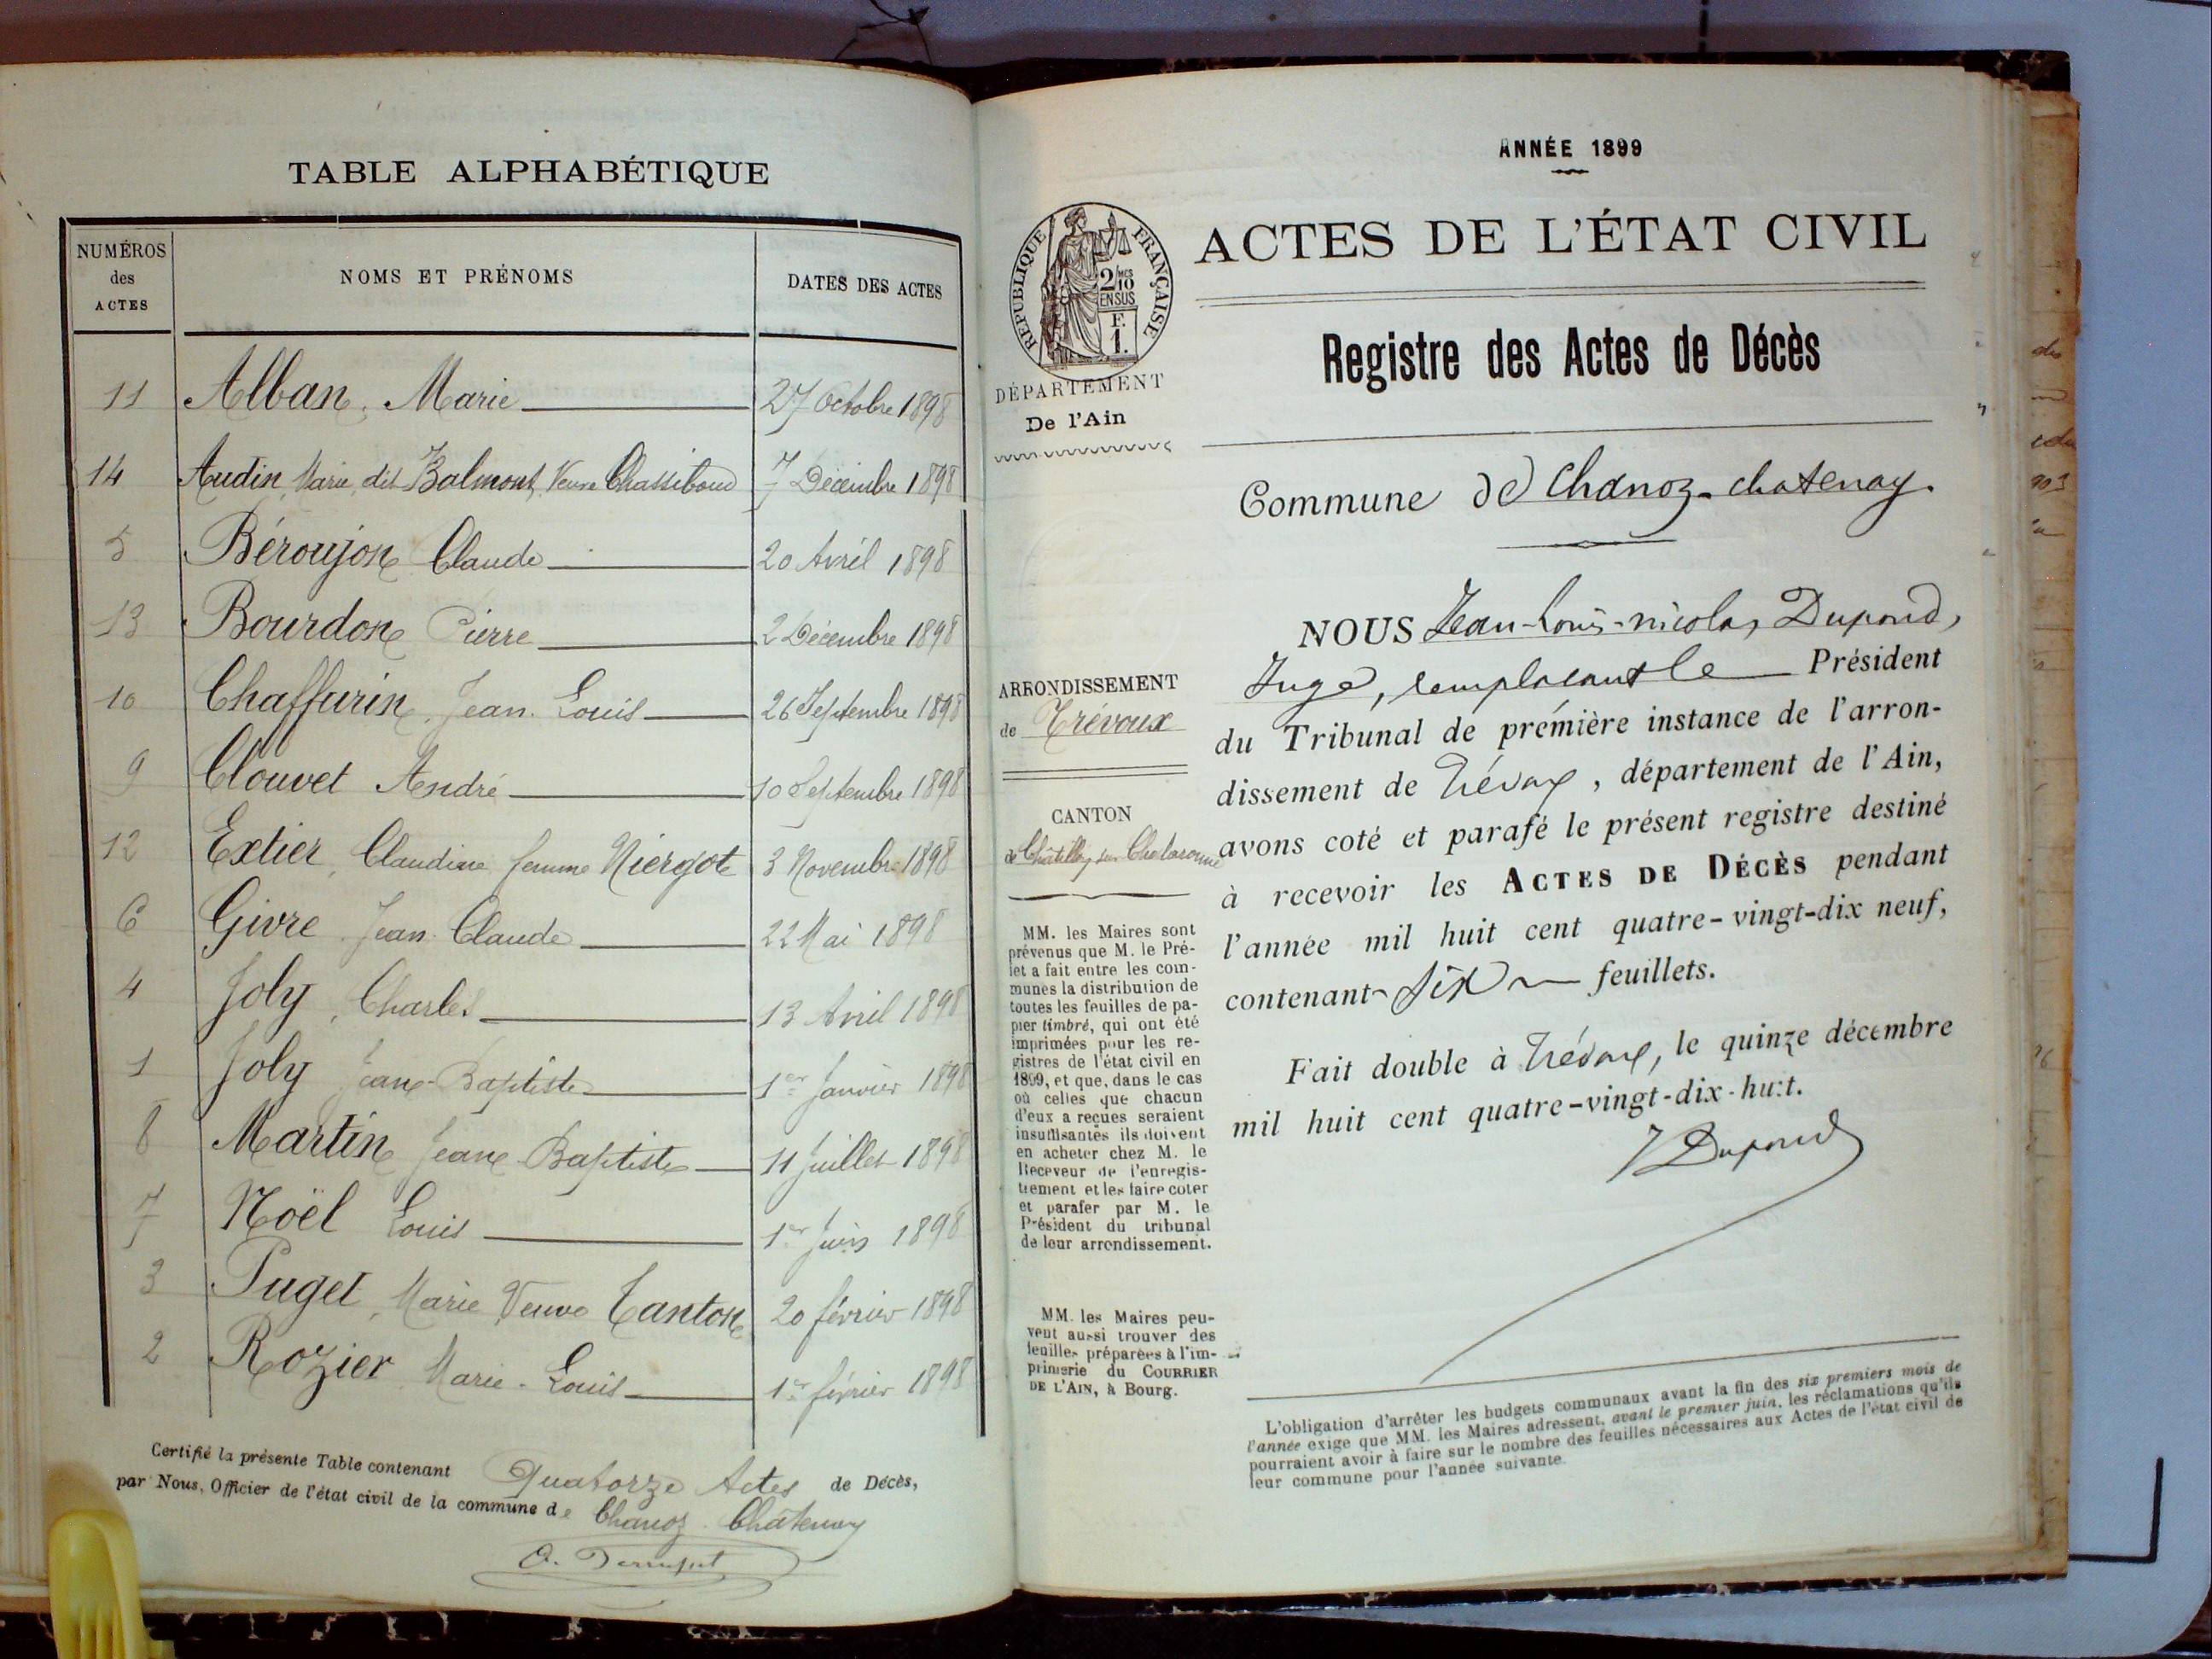 TABLE ALPHABÉTIQUE
NUMÉROS des ACTES
NOMS ET PRÉNOMS
DATES DES ACTES
11 Alban, Marie 27 Octobre 1898
14 Audin, Marie, dit Balmont, Veuve 7 Décembre 1898
5 Béroujon Claude 20 Avril 1898
13 Bourdon Pierre 2 Décembre 1898
10 Chaffurin, Jean-Louis 26 Septembre 1898
9 Clouvet André 10 Septembre 1898
12 Extier, Claudine femme Niergot 3 Novembre 1898
6 Givre Jean-Claude 22 Mai 1898
4 Joly, Charles 13 Avril 1898
1 Joly Jean-Baptiste 1er Janvier 1898
8 Martin Jean-Baptiste 11 Juillet 1898
7 Noël Louis 1er Juin 1898
3 Puget, Marie Veuve Tanton 20 février 1898
2 Rozier Marie-Louis 1er février 1898
Certifié la présente Table contenant Quatorze Actes de Décès,
par Nous, Officier de l'état civil de la commune de Chanoz-Châtenay
ANNÉE 1899
RÉPUBLIQUE FRANÇAISE
2/10mes
EN SUS
F.
1.
DÉPARTEMENT
De l'Ain
ACTES DE L'ÉTAT CIVIL
Registre des Actes de Décès
Commune de Chanoz-chatenay.
ARRONDISSEMENT
de Trévoux
CANTON
de Châtillon sur Chalaronne
MM. les Maires sont
prévenus que M. le Pré-
fet a fait entre les com-
munes la distribution de
toutes les feuilles de pa-
pier timbré, qui ont été
imprimées pour les re-
gistres de l'état civil en
1899, et que, dans le cas
où celles que chacun
d'eux a reçues seraient
insuffisantes ils doivent
en acheter chez M. le
Receveur de l'enregis-
trement et les faire coter
et parafer par M. le
Président du tribunal
de leur arrondissement.
MM. les Maires peu-
vent aussi trouver des
feuilles préparées à l'im-
primerie du COURRIER
DE L'AIN, à Bourg.
NOUS Jean-Louis-nicolas Dupond,
Juge, remplacant le Président
du Tribunal de prémière instance de l'arron-
dissement de Trévoux, département de l'Ain,
avons coté et parafé le présent registre destiné
à recevoir les ACTES DE DÉCÈS pendant
l'année mil huit cent quatre-vingt-dix neuf,
contenant six feuillets.
Fait double à Trévoux, le quinze décembre
mil huit cent quatre-vingt-dix-huit.
Dupond
L'obligation d'arrêter les budgets communaux avant la fin des six premiers mois de
l'année exige que MM. les Maires adressent, avant le premier juin, les réclamations qu'ils
pourraient avoir à faire sur le nombre des feuilles nécessaires aux Actes de l'état civil de
leur commune pour l'année suivante.